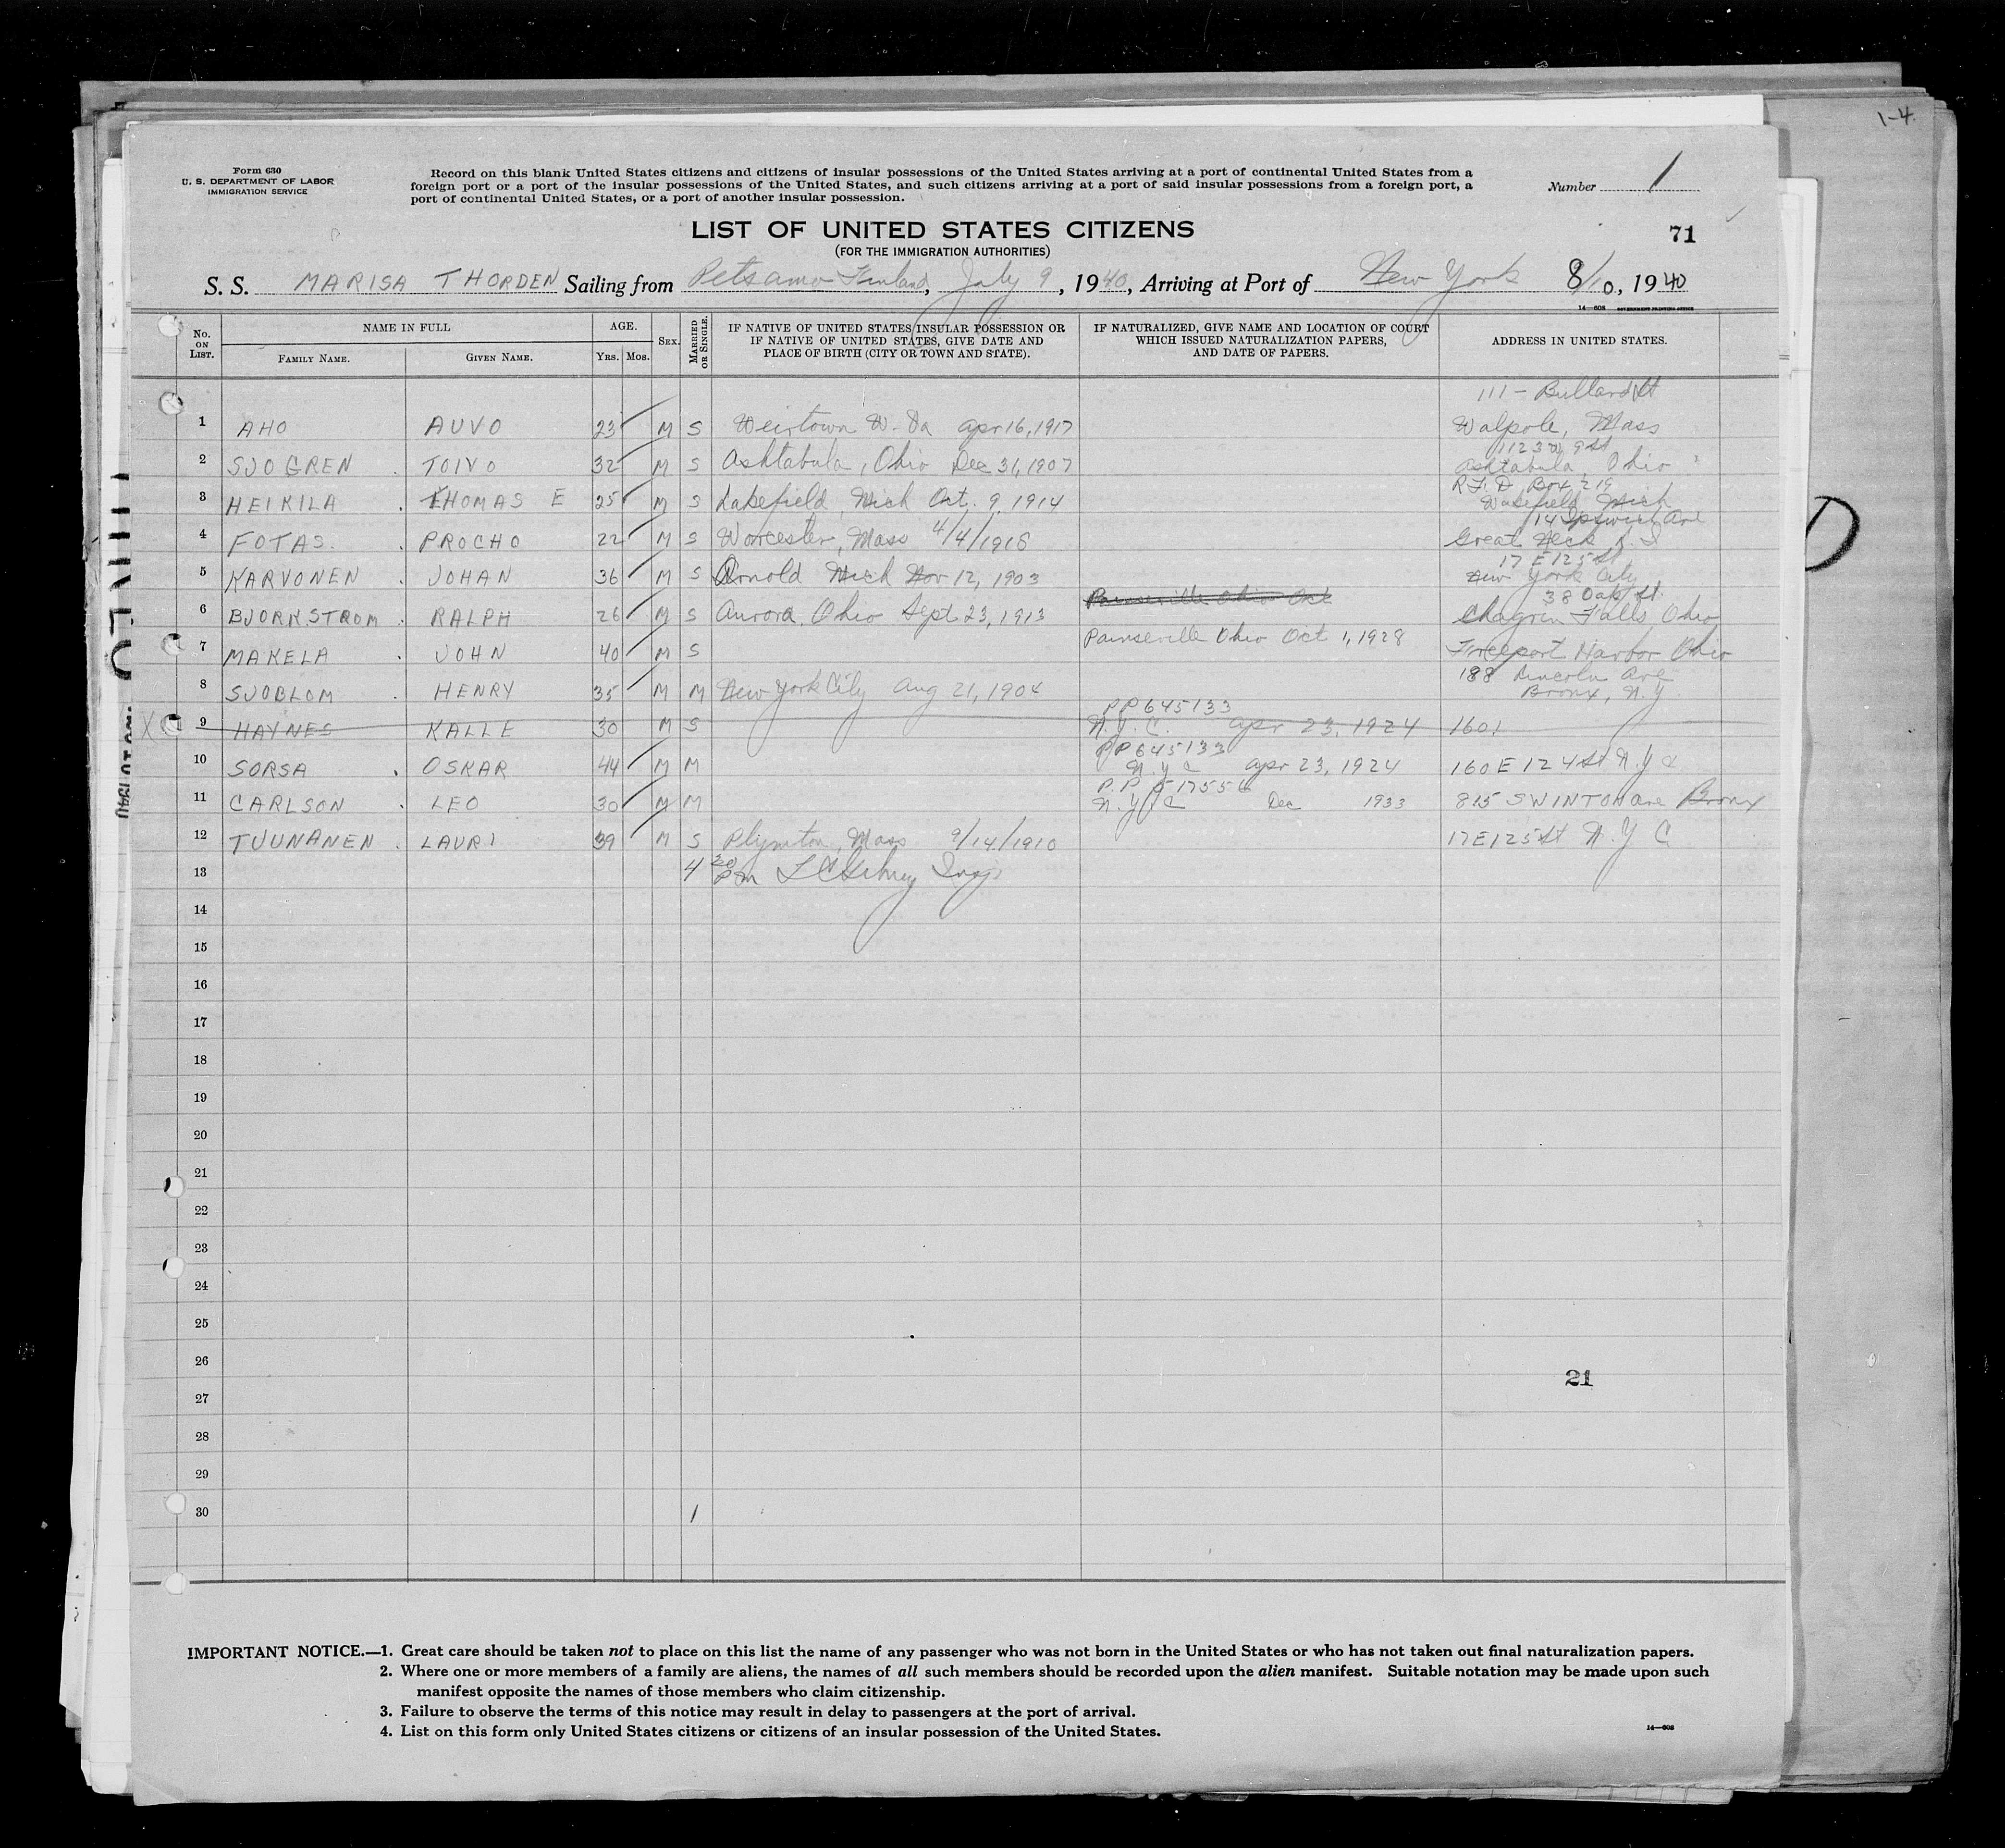 1-4
Form 630
U. S. DEPARTMENT OF LABOR
IMMIGRATION SERVICE
Record on this blank United States citizens and citizens of insular possessions of the United States arriving at a port of continental United States from a
foreign port or a port of the insular possessions of the United States, and such citizens arriving at a port of said insular possessions from a foreign port, a
port of continental United States, or a port of another insular possession.
Number 1
LIST OF UNITED STATES CITIZENS
(FOR THE IMMIGRATION AUTHORITIES)
71
S. S. MARISA THORDEN Sailing from Petsamo Finland, July 9, 1940, Arriving at Port of New York 8/10, 1940
14—608 GOVERNMENT PRINTING OFFICE
No. ON LIST.
NAME IN FULL
FAMILY NAME. GIVEN NAME.
AGE.
Yrs. Mos.
SEX.
MARRIED OR SINGLE.
IF NATIVE OF UNITED STATES INSULAR POSSESSION OR
IF NATIVE OF UNITED STATES, GIVE DATE AND
PLACE OF BIRTH (CITY OR TOWN AND STATE).
IF NATURALIZED, GIVE NAME AND LOCATION OF COURT
WHICH ISSUED NATURALIZATION PAPERS,
AND DATE OF PAPERS.
ADDRESS IN UNITED STATES.
111 - Bullard St
1 AHO AUVO 23 M S Weirtown W. Va Apr 16, 1917 Walpole, Mass
1123 W 9 St
2 SJOGREN TOIVO 32 M S Ashtabula, Ohio Dec 31, 1907 Ashtabula, Ohio
R.F.D Box 219
3 HEIKILA THOMAS E 25 M S Lakefield, Mich Oct. 9, 1914 Wakefield Mich
14 Ipswich Ave
4 FOTAS. PROCHO 22 M S Worcester, Mass 4/4/1918 Great Neck L.I
17 E 125 St
5 KARVONEN JOHAN 36 M S Arnold Mich Nov 12, 1903 New York City
38 Oak St.
6 BJORKSTROM RALPH 26 M S Aurora, Ohio Sept 23, 1913 Painseville Ohio Oct Chagrin Falls Ohio
7 MAKELA JOHN 40 M S Painseville Ohio Oct 1, 1928 Freeport Harbor Ohio
188 Lincoln Ave
8 SJOBLOM HENRY 35 M M New York City Aug 21, 1904 Bronx, N.Y.
PP 645133
X 9 HAYNES KALLE 30 M S N.Y.C. Apr 23, 1924 1601
PP 645133
10 SORSA OSKAR 44 M M N.Y C Apr 23, 1924 160 E 124 St N.Y C
P.P 517556
11 CARLSON LEO 30 M M N.Y.C Dec 1933 815 SWINTON ave Bronx
12 TUUNANEN LAURI 39 M S Plymton, Mass 9/14/1910 17 E 125 St N.Y C
13 4 20 PM
14
15
16
17
18
19
20
21
22
23
24
25
26
21
27
28
29
30 1
IMPORTANT NOTICE.—1. Great care should be taken not to place on this list the name of any passenger who was not born in the United States or who has not taken out final naturalization papers.
2. Where one or more members of a family are aliens, the names of all such members should be recorded upon the alien manifest. Suitable notation may be made upon such
manifest opposite the names of those members who claim citizenship.
3. Failure to observe the terms of this notice may result in delay to passengers at the port of arrival.
4. List on this form only United States citizens or citizens of an insular possession of the United States.
14—608